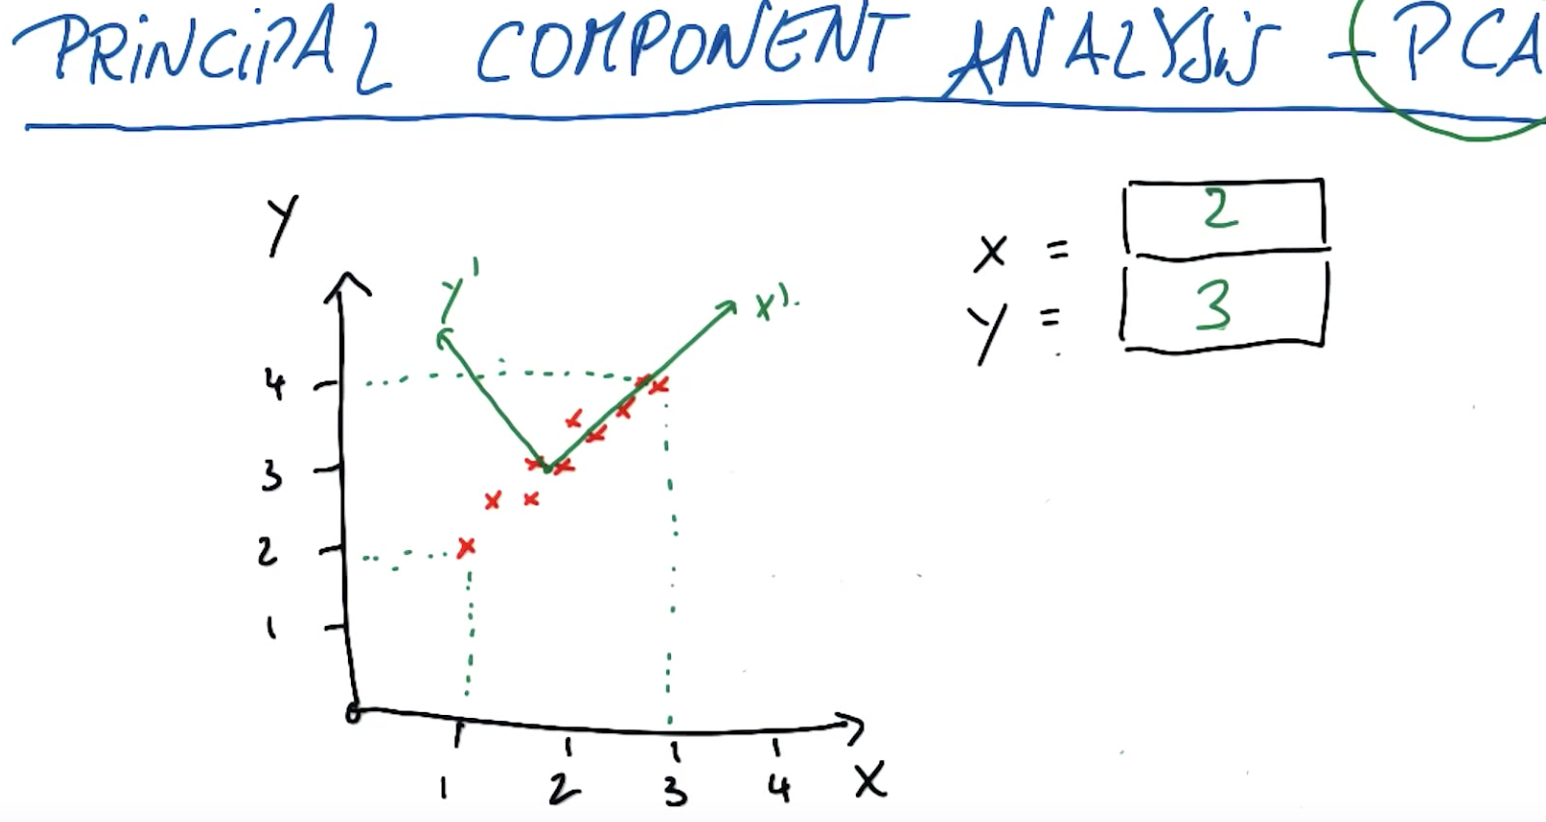 PRiNCiPAL COMPONENT ANALYSiS - PCA
Y
y'
x'.
4
3
2
1
0
1 2 3 4 X
x = 2
y = 3